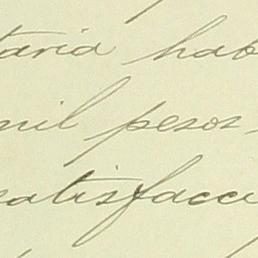 taria hab
mil pesos
satisfacci